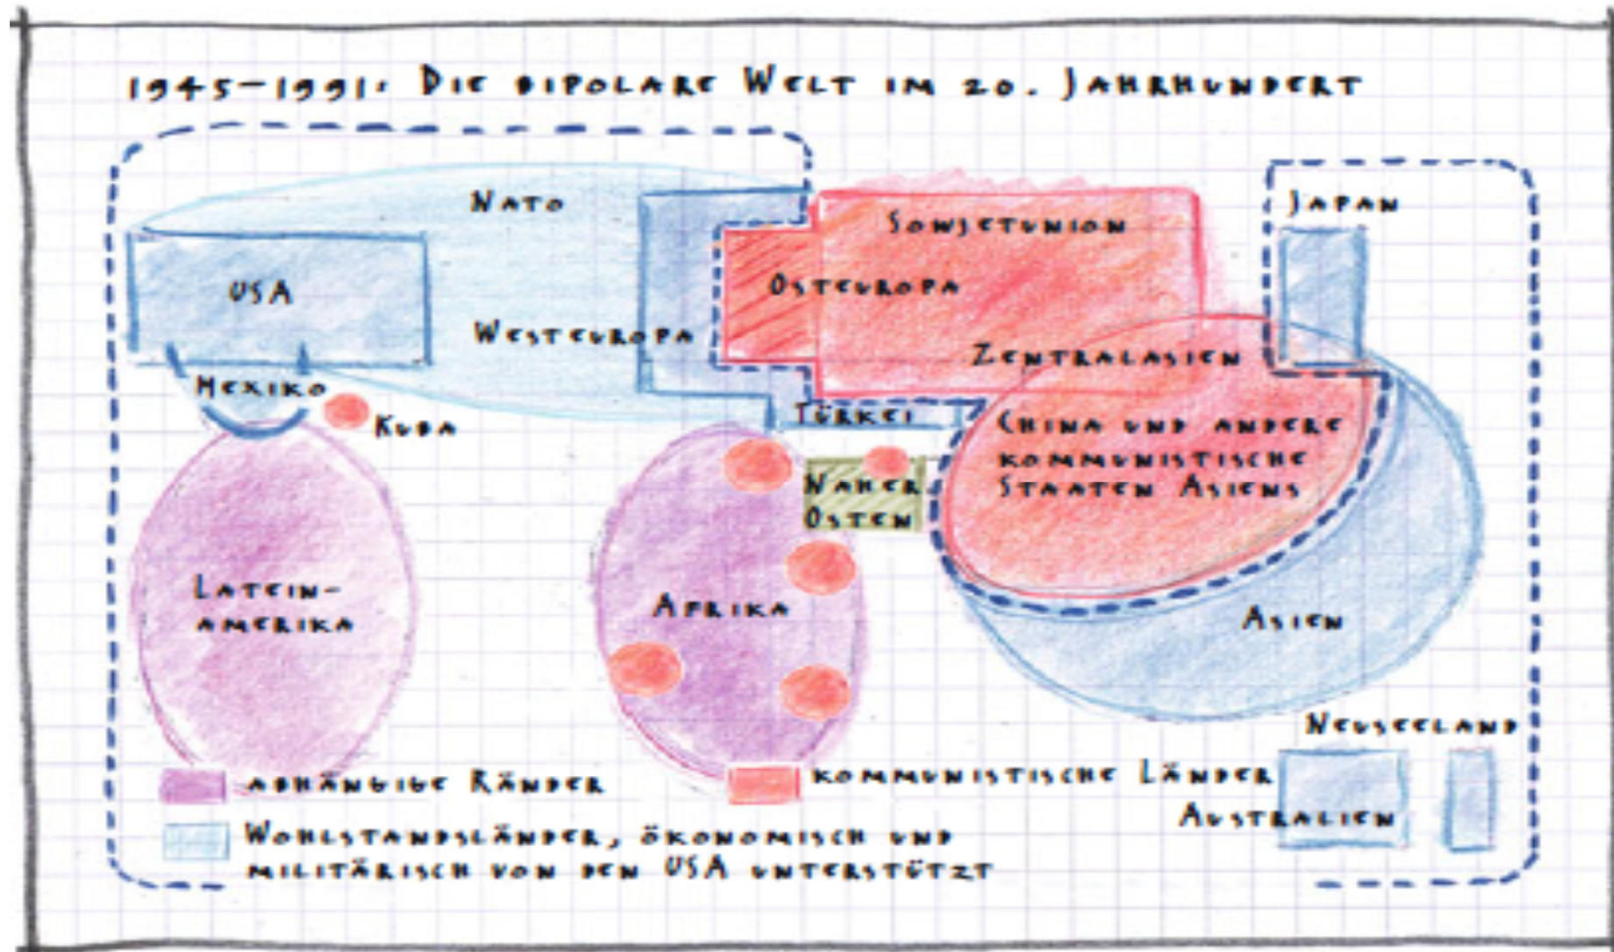 1945–1991: Die bipolare Welt im 20. Jahrhundert
Nato
Japan
Sowjetunion
USA
Osteuropa
Westeuropa
Zentralasien
Mexiko
Kuba
Türkei
China und andere
kommunistische
Staaten Asiens
Naher
Osten
Latein-
amerika
Afrika
Asien
Neuseeland
Australien
abhängige Ränder
kommunistische Länder
Wohlstandsländer, ökonomisch und
militärisch von den USA unterstützt